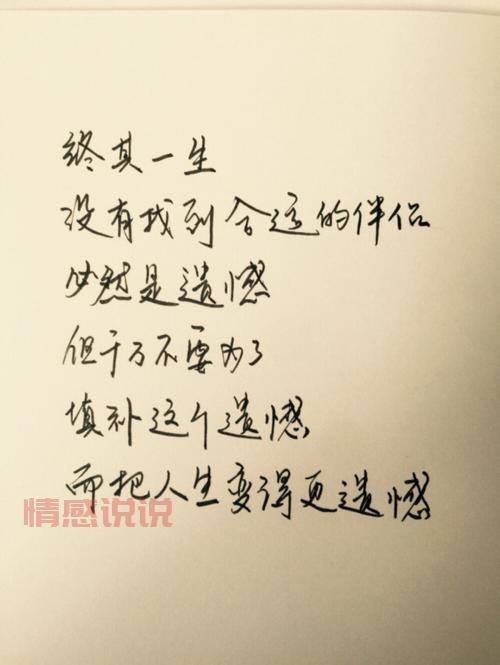 终其一生
没有找到合适的伴侣
必然是遗憾
但千万不要为了
填补这个遗憾
而把人生变得更遗憾
情感说说